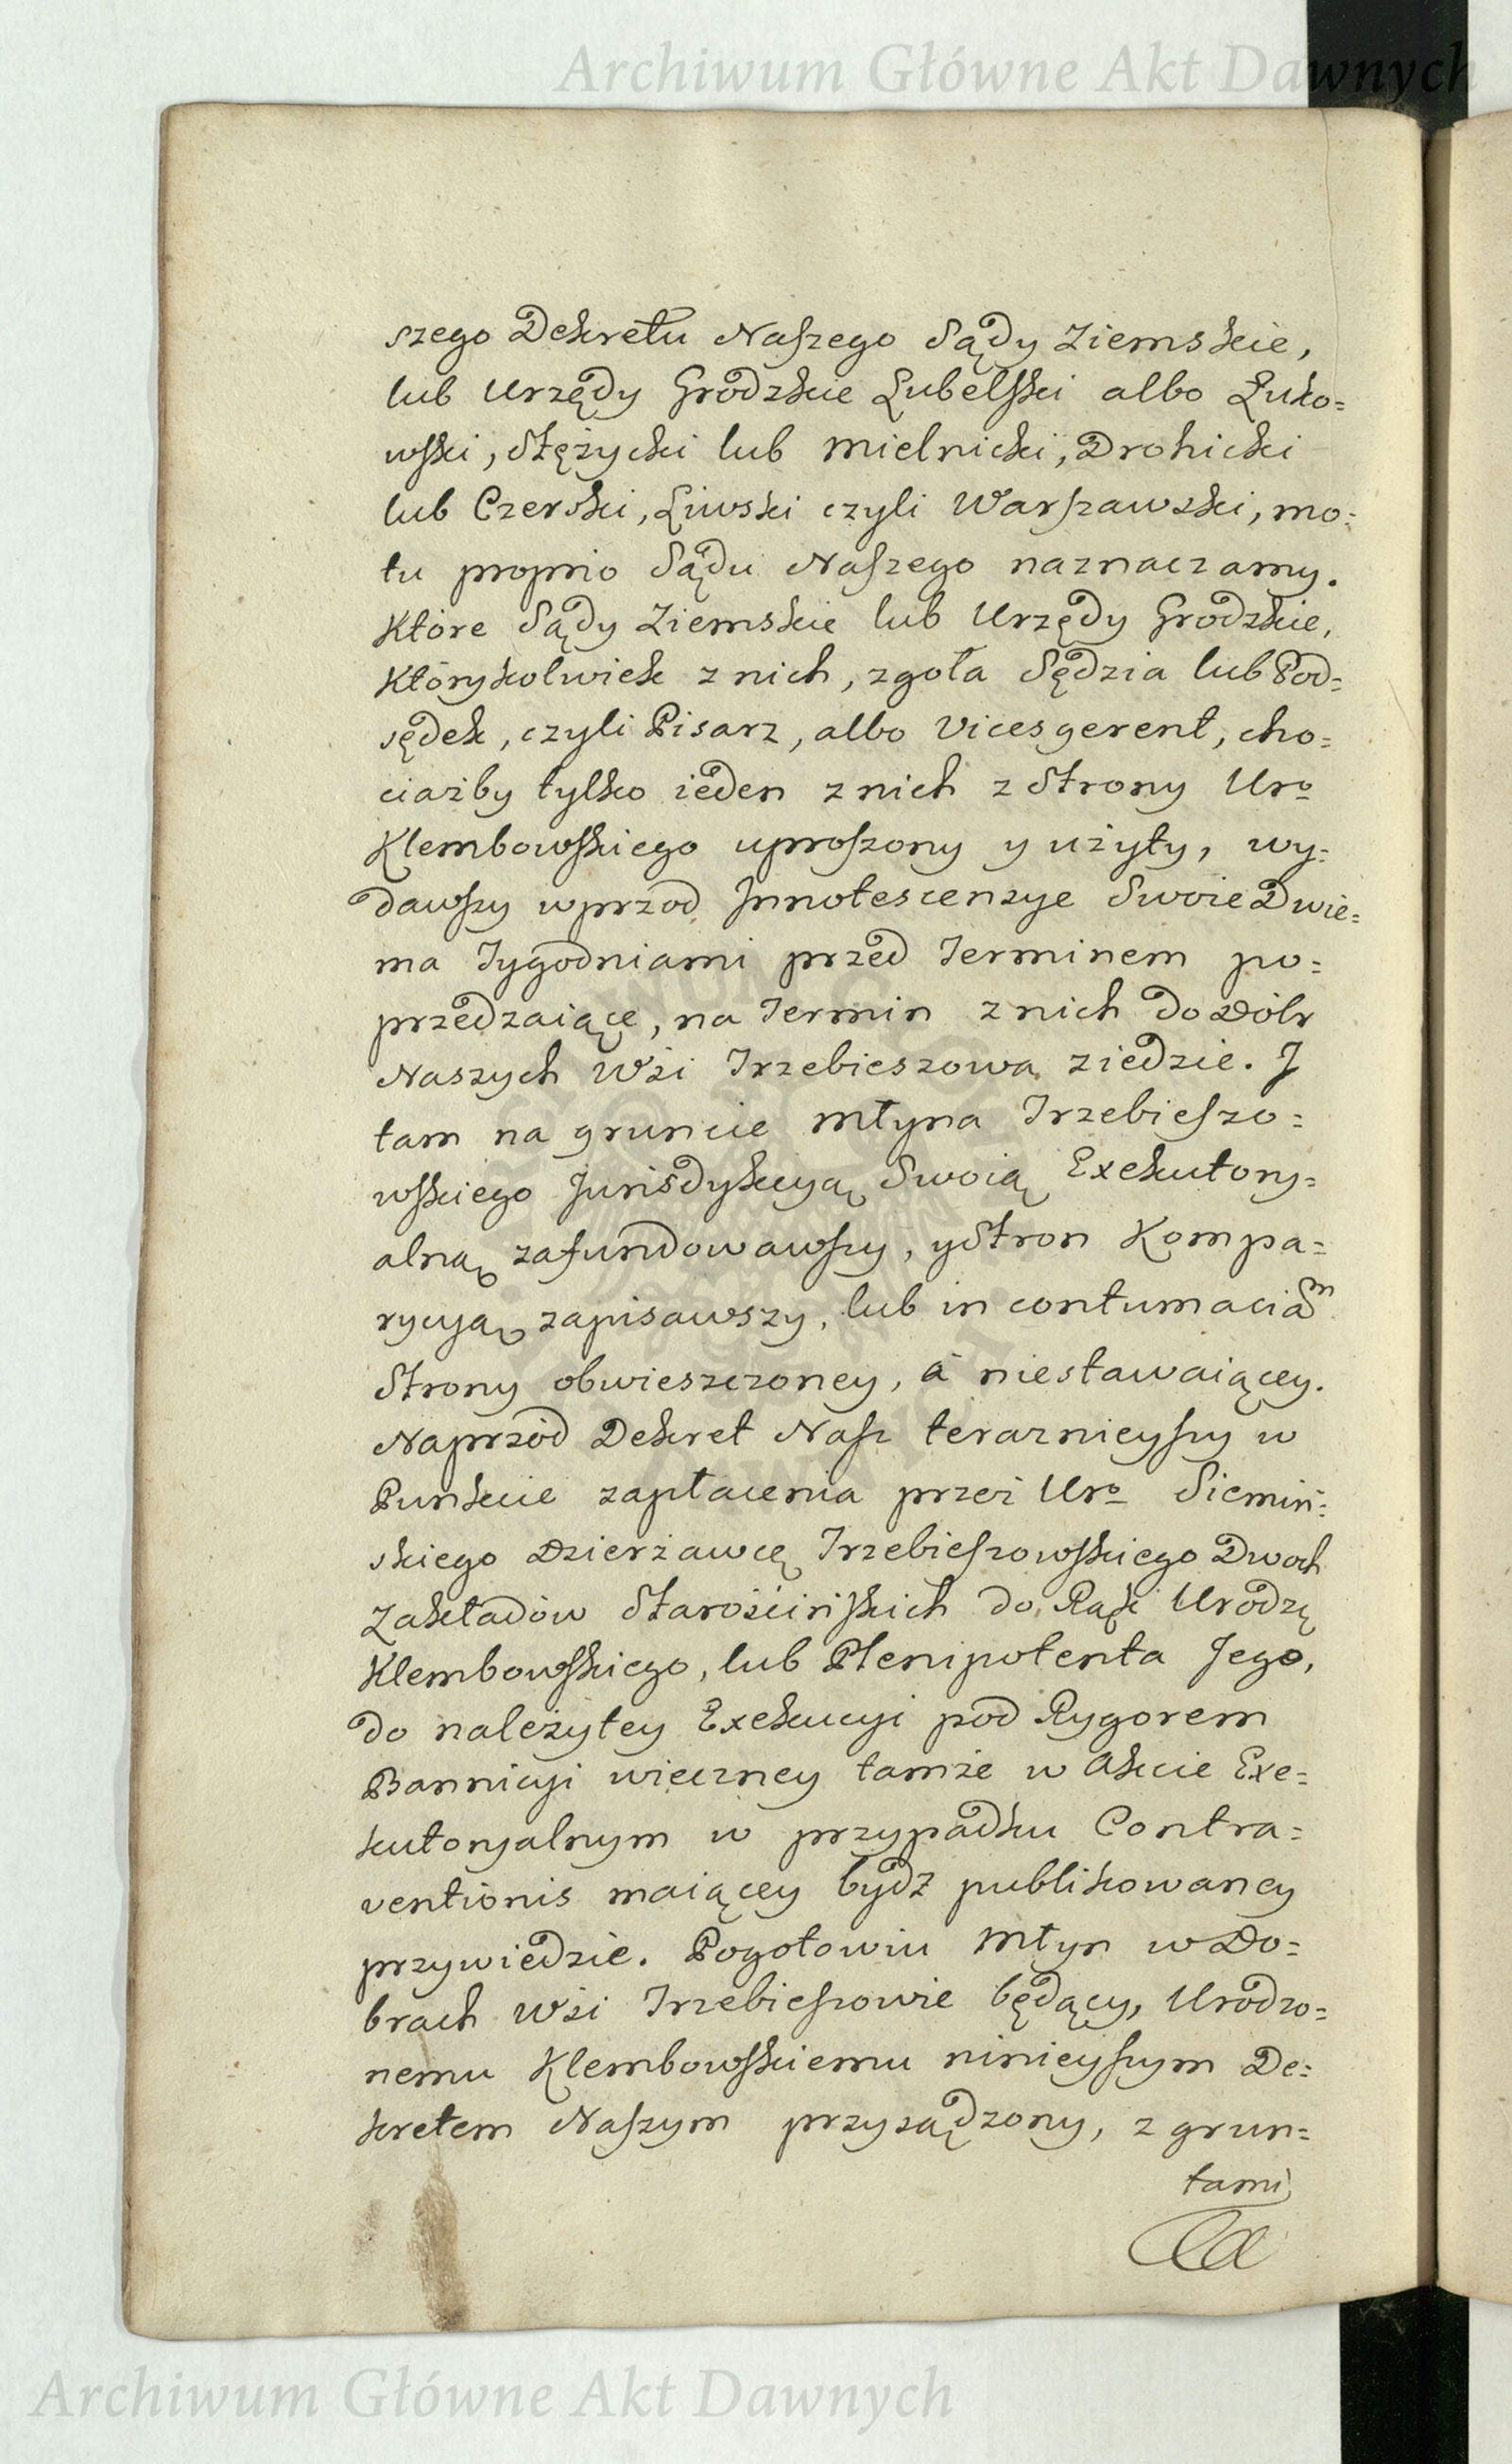 Archiwum Główne Akt Dawnych
szego Dekretu Naszego Sądy Ziemskie,
lub Urzędy Grodzkie Lubelski albo Łuko=
wski, Stężycki lub Mielnicki, Drohicki
lub Czerski, Liwski czyli Warszawski, mo=
tu proprio Sądu Naszego naznaczamy.
Które Sądy Ziemskie lub Urzędy Grodzkie,
Którykolwiek z nich, zgoła Sędzia lub Pod=
sędek, czyli Pisarz, albo Vicesgerent, cho=
ciażby tylko ieden z nich z Strony Uro
Klembowskiego uproszony y użyty, wy=
dawszy wprzod Innotescenzye Swoie Dwie=
ma Tygodniami przed Terminem po=
przedzaiące, na Termin z nich do Dóbr
Naszych Wsi Trzebieszowa ziedzie. I
tam na gruncie Młyna Trzebieszo=
wskiego Jurisdykcyą Swoią Exekutory=
alną zafundowawszy, y Stron Kompa=
rycyą zapisawszy, lub in contumaciam
Strony obwieszczoney, á niestawaiącey.
Naprzód Dekret Nasz terazneiyszy w
Punkcie zapłacenia przez Uro Siemiń=
skiego Dzierżawcę Trzebieszowskiego Dwoch
Zakładów Starościńskich do Rąk Urodzę
Klembowskiego, lub Plenipotenta Jego,
do należytey Exekucyi pod Rygorem
Bannicyi wieczney tamże w Akcie Exe=
kutoryalnym w przypadku Contra=
ventionis maiącey bydz publikowaney
przywiedzie. Pogotowiu Młyn w Do=
brach Wsi Trzebieszowie będący, Urodzo=
nemu Klembowskiemu ninieyszym De=
kretem Naszym przysądzony, z grun=
tami
Archiwum Główne Akt Dawnych